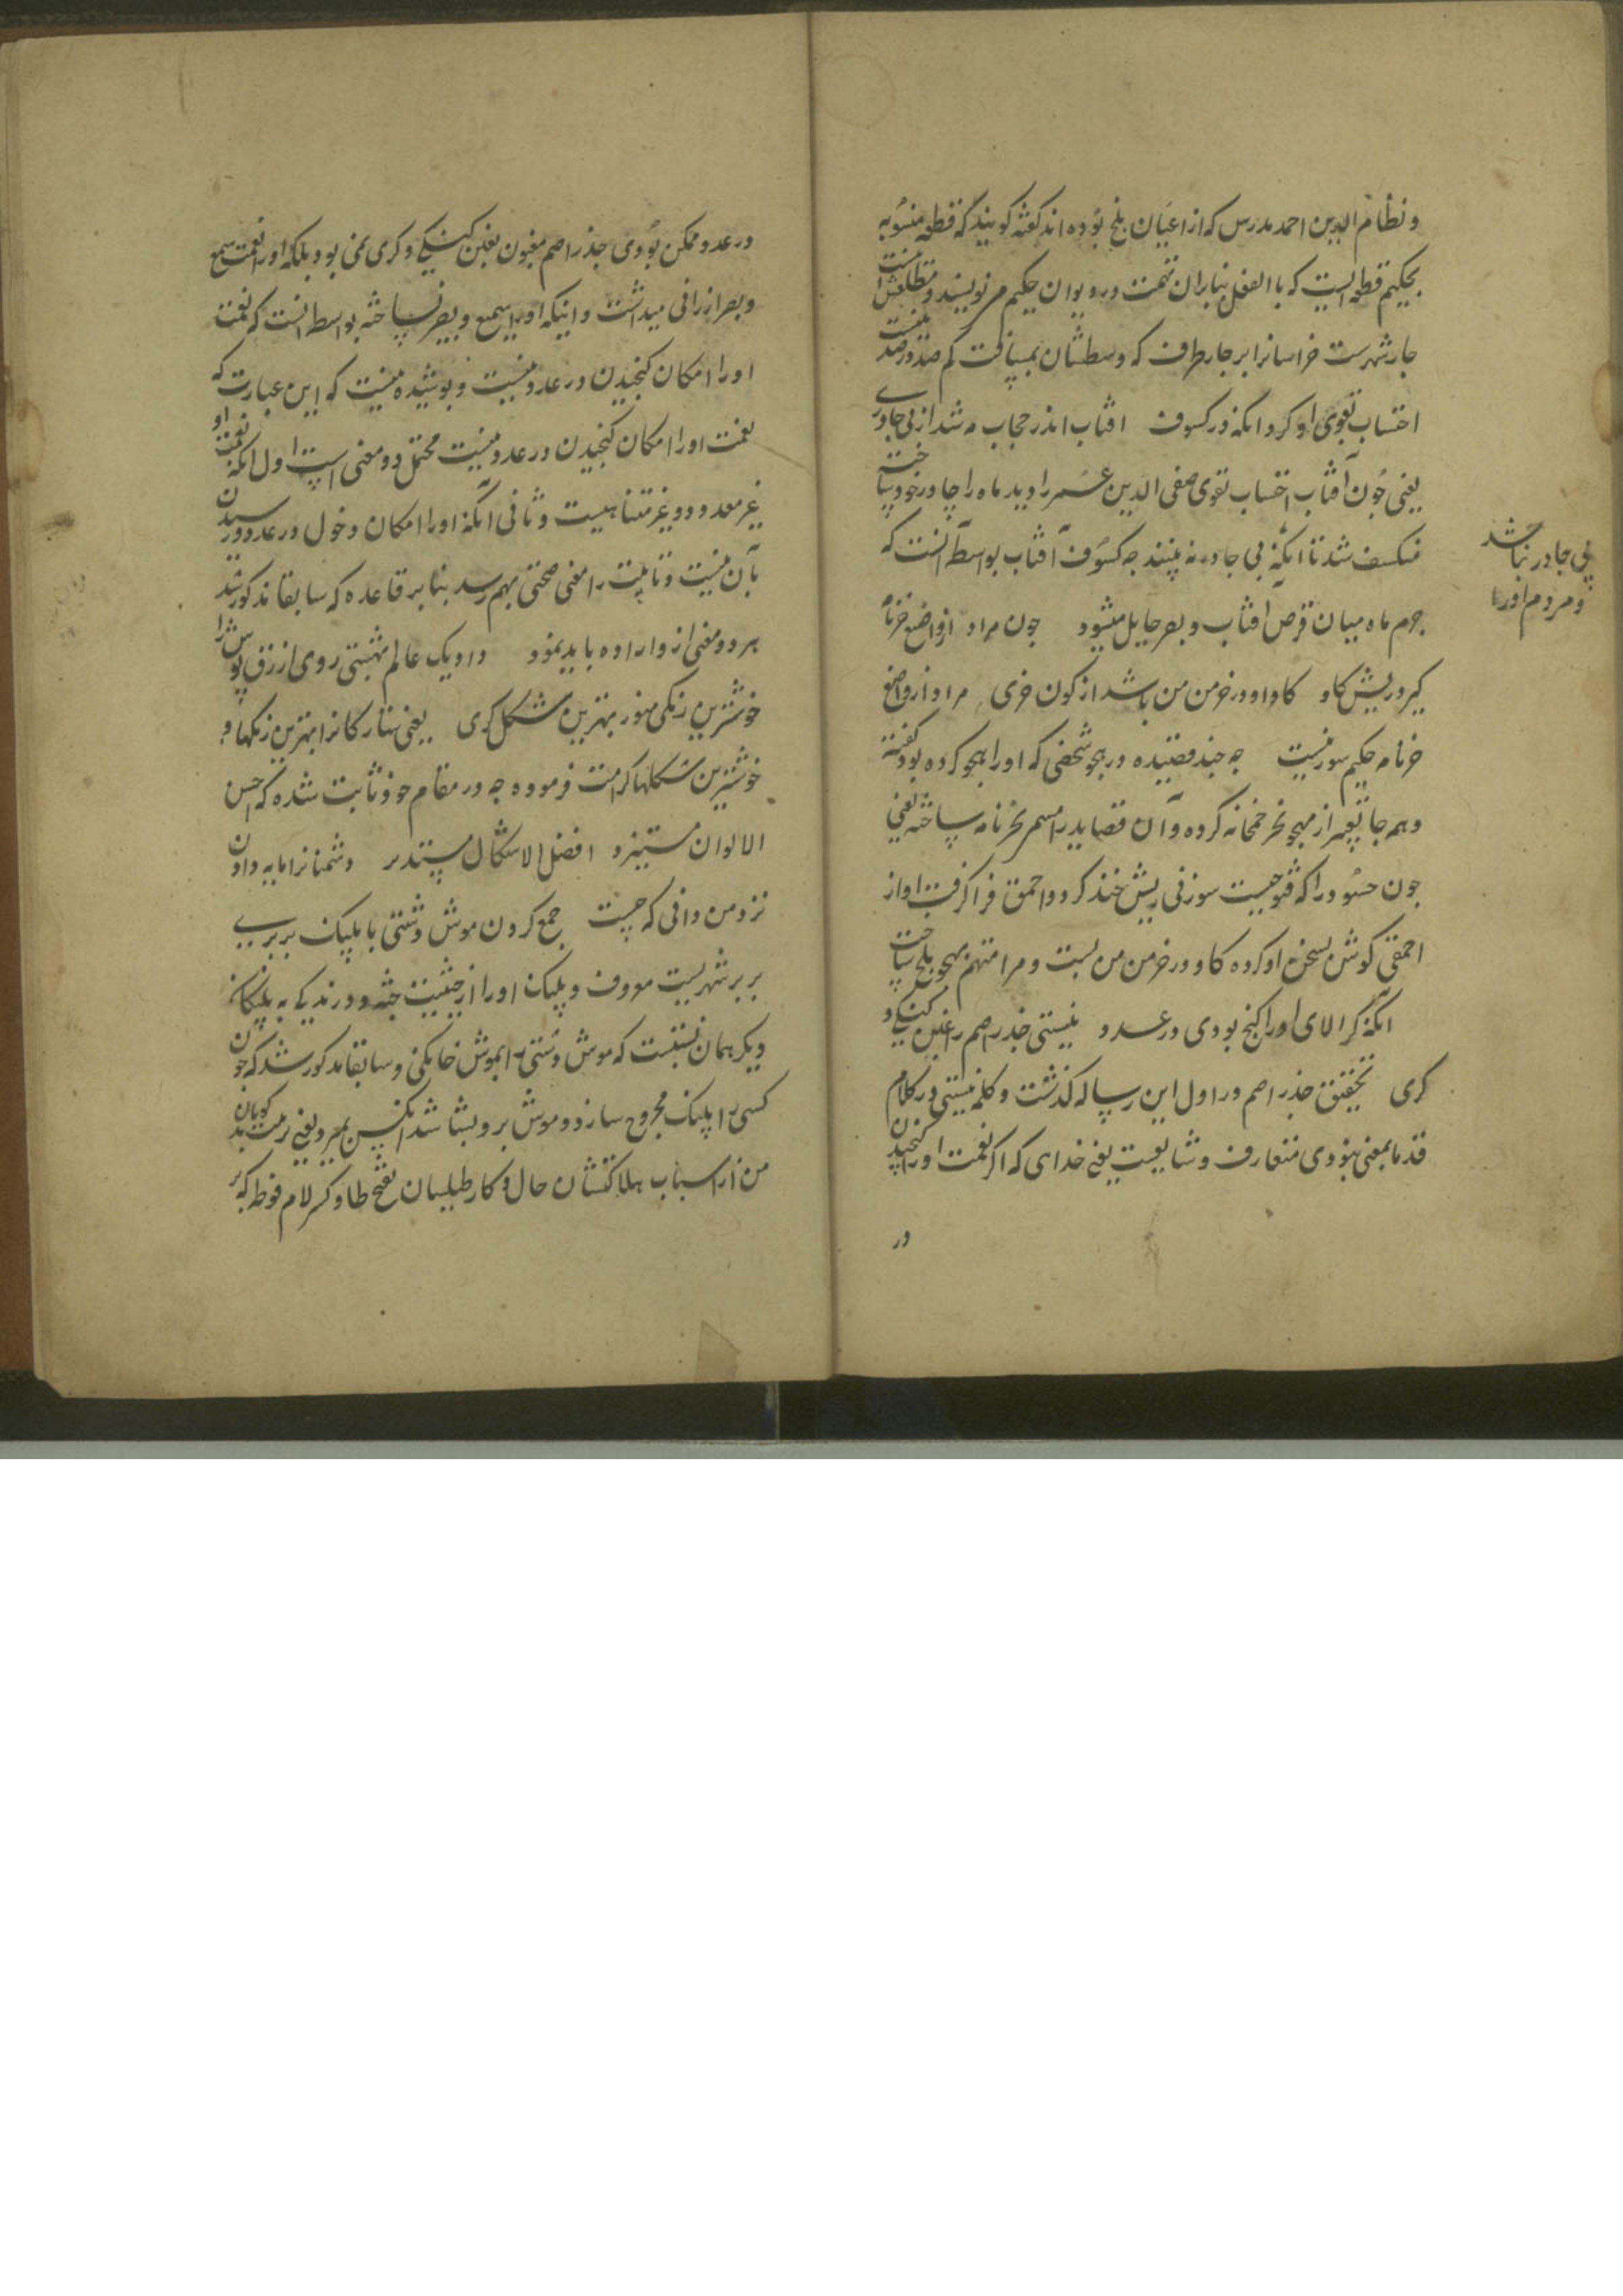 و نظام الدین احمد مدرس که از اعیان بلخ بوده اند کفته کویند که قطعه منسوبه
بحکیم قطعه ایست که با الفعل بنابران تهمت در دیوان حکیم مینویسند و مطلعش اینست
جار شهرست خراسانرا بر جار طرف که وسطشان بمسافت کم صد در صد نیست
احتساب تقوی او کرد انکه در کسوف افتاب اندر حجاب مه شد از بی جادری
یعنی جون آفتاب احتساب تقوی صفی الدین عمر را دید ماه را جادر خود ساخته
منکسف شد تا انکه بی جادر نه بینند جه کسوف آفتاب بواسطه آنست که
بی جادر نباشد
و مردم او را
جرم ماه میان قرص افتاب و بصر حایل میشود جون مراد از واضع خرنامه
کیر در ریش کاو کاو او در خرمن من باشد از کون خری مراد از واضع
خرنامه حکیم سوزنیست جه جند قصیده در هجو شخصی که او را هجو کرده بود کفته
و همه جا تعبیر از مهجو بخر خمخانه کرده و آن قصاید را مسمی بخرنامه ساخته یعنی
جون حسود را که فتوحیست سوزنی ریش خند کرد و احمق فرا کرفت او از
احمقی کوش بسخن او کرده کاو در خرمن من بست و مرا متهم بهجو بلخ ساخت
انکه کر الای او را کنج بودی در عدد نیستی جذر اصم را غبن کنکی و
کری تحقیق جذر اصم در اول این رساله کذشت و کلمه نیستی در کلام
قدما بمعنی نبودی متعارف و شایعست یعنی خدای که اکر نعمت او را کنجیدن
در
در عدد ممکن بودی جذر اصم مغبون بغبن کنکی و کری نمی بود بلکه او را نعمت سمع
و بصر ارزانی میداشت و اینکه او را سمیع و بصیر نساخته بواسطه انست که نعمت
او را امکان کنجیدن در عدد نیست و پوشیده نیست که این عبارت که
نعمت او را امکان کنجیدن در عدد نیست محتمل دو معنی است اول انکه نعمت او
غیر معدود و غیر متناهیست و ثانی آنکه او را امکان دخول در عدد و رسیدن
بآن نیست و تا بیت را معنی صحتی بهم رسد بنا بر قاعده که سابقا مذکور شد
هر دو معنی ازو اراده باید نمود داد یک عالم بهشتی روی ازرق پوش را
خوشترین رنکی منور بهترین شکل کری یعنی ستارکانرا بهترین رنکها و
خوشترین شکلها کرامت فرموده جه در مقام خود ثابت شده که احسن
الالوان مستنیر و افضل الاشکال مستدیر دشمنانرا مایه دادن
نزد من دانی که جیست جمع کردن موش دشتی با پلنک بربری
بربر شهریست معروف و پلنک او را از حیثیت جثه و درندکی به پلنکان
دیکر همان نسبتست که موش دشتی را بموش خانکی و سابقا مذکور شد که جون
کسی را پلنک مجروح سازد و موش برو بشاشد آنکس بمیرد یعنی تربیت بدکویان
من از اسباب هلاکتشان حال و کار طیلسان بفتح طا و کسر لام فوطه که بر